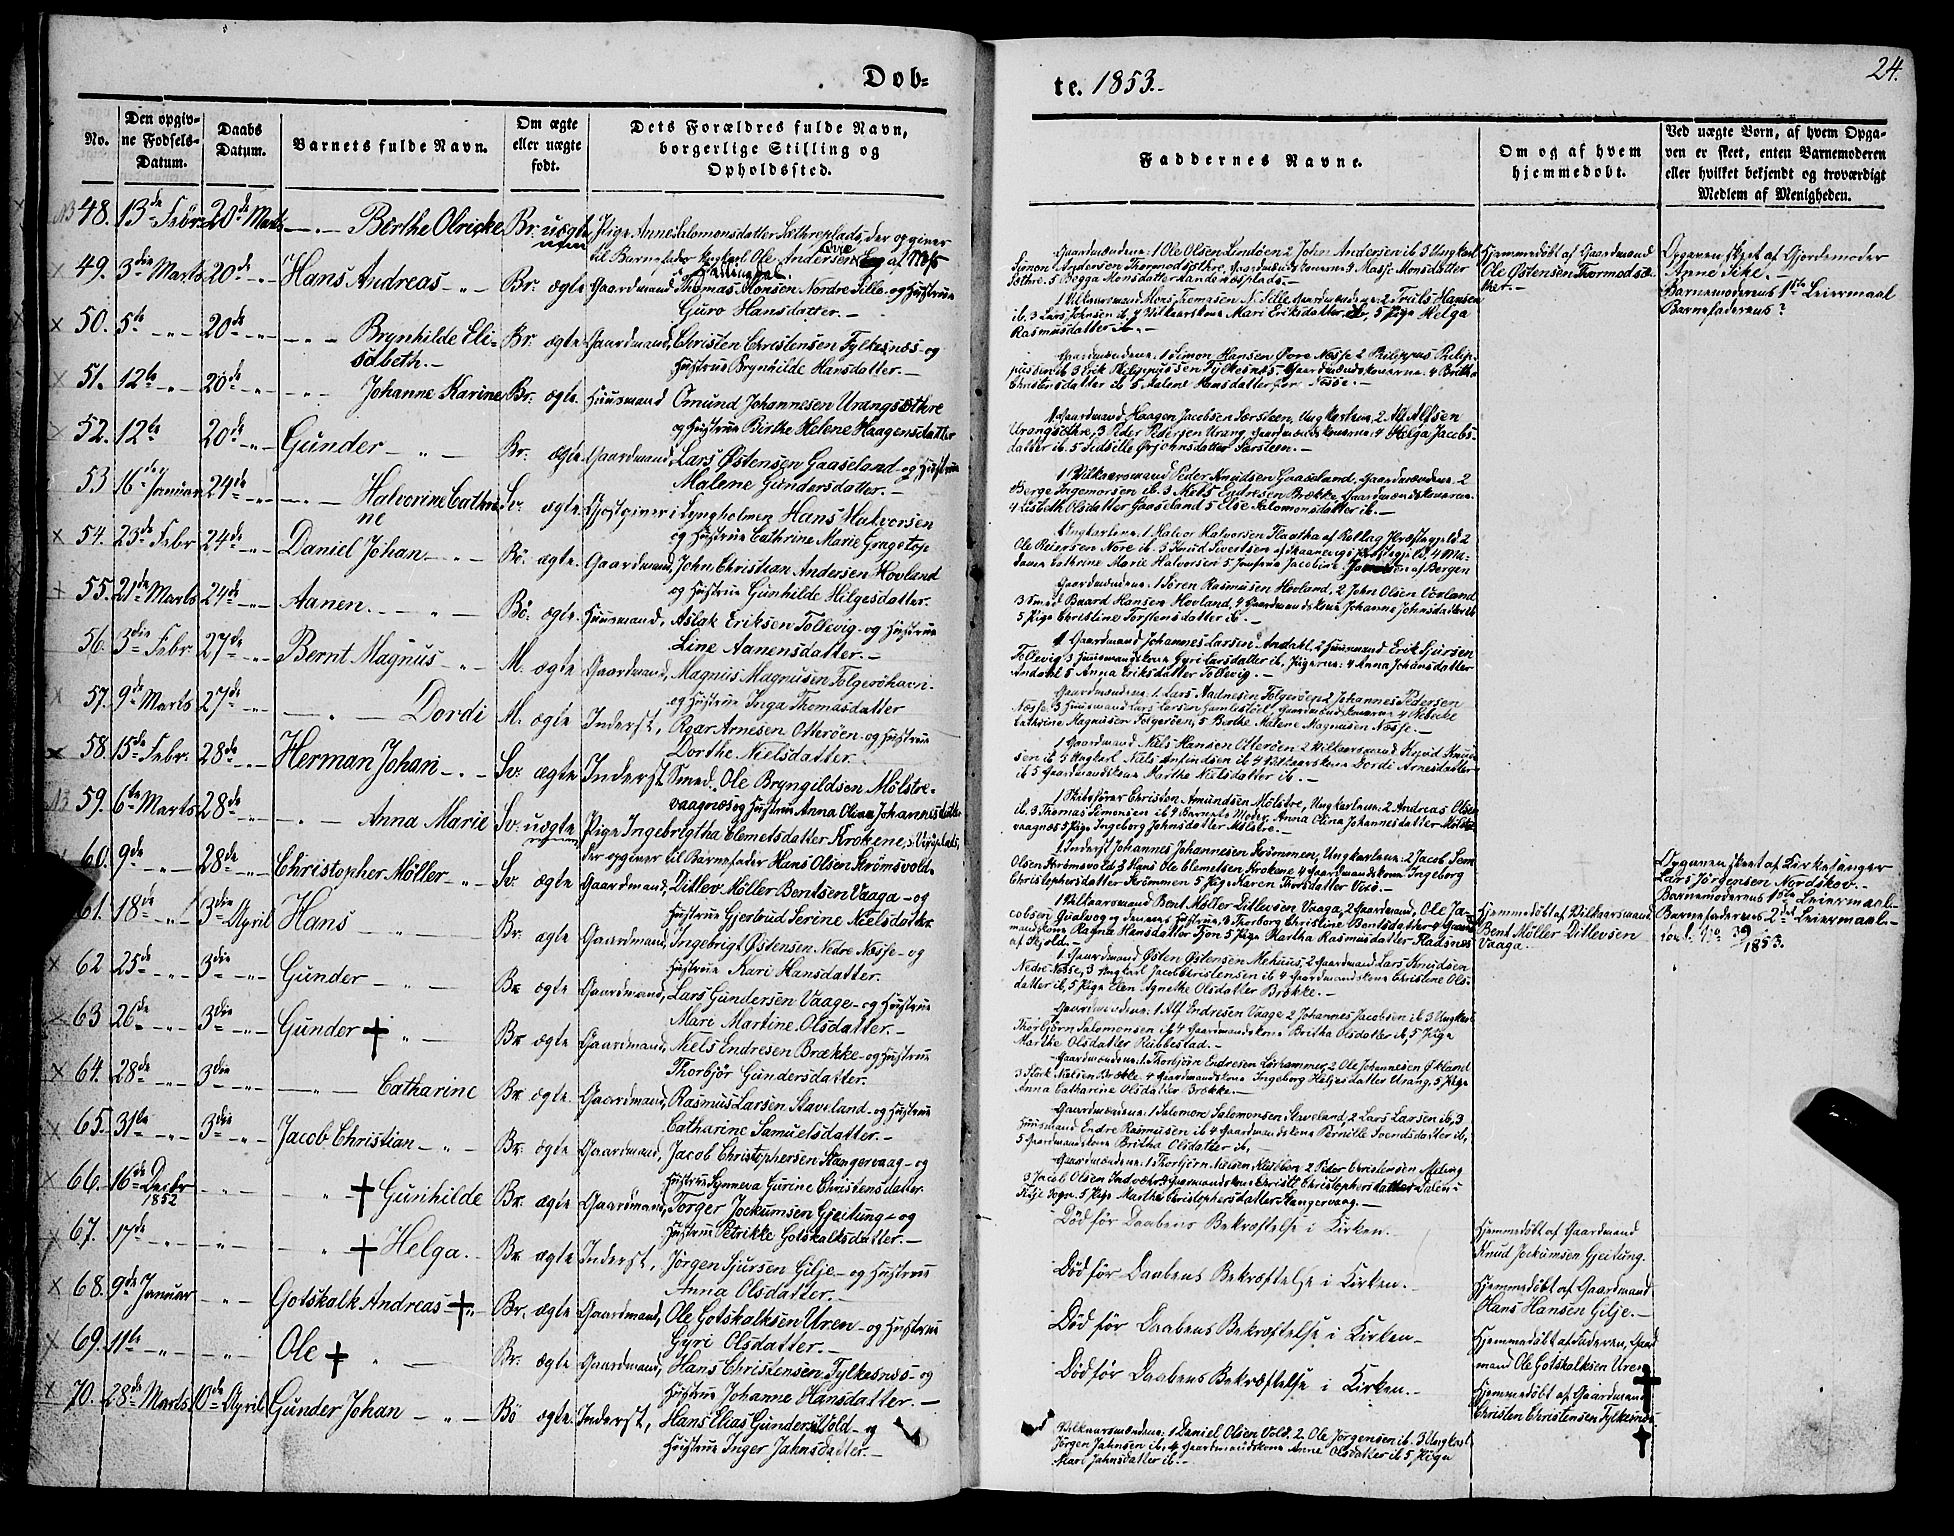 Dob=
No.
Den opgiv=
ne Fodsels=
Datum.
Daabs
Datum.
Barnets fulde Navn.
Om ægte
eller uægte
født.
Dets Forældres fulde Navn,
borgerlige Stilling og
Opholdssted.
48. 13de Febr. 20de Marts Berthe Olricke Br: uægte Pige Anne Salomonsdatter Sæthreplads, der opgiver
til Barnefader Ungkarl Ole Andersen
49. 3die Marts 20de Hans Andreas Br: ægte Gaardmand Thomas Monsen Nordre Tille og Hustrue
Guro Hansdatter.
50. 5te 20de Brynhilde Eli=
sabeth. Br. ægte Gaardmand, Christen Christensen Fylkesnæs og
Hustrue Brynhilde Hansdatter.
51. 12te 20de Johanne Karine Br: ægte Huusmand Omund Johannesen Urangsæthre
og Hustrue Birthe Helene Haagensdatter
52. 12te 20de Gunder Br. ægte Gaardmand, Lars Østensen Gaaseland og Hustrue
Malene Gundersdatter.
53 16de Januar 24de Halvorine Cathri
ne Sv. ægte Gjestgiver i Lyngholmen Hans Halvorsen
og Hustrue Cathrine Marie
54. 23de Febr 24de Daniel Johan Bö. ægte Gaardmand, John Christian Andersen Hovland
og Hustrue Gunhilde Helgesdatter.
55. 21de Marts 24de Aanen. Bö. ægte Huusmand, Aslak Eriksen Tollevig og Hustrue
Line Aanensdatter.
56. 3die Febr. 27de Bernt Magnus M. ægte Gaardmand, Magnus Magnusen Folgeröhavn
og Hustrue Inga Thomasdatter
57. 9de Marts 27de Dordi M. ægte Inderst, Roar Arnesen Otteröen og Hustrue
Dorthe Nielsdatter
58. 15de Febr. 28de Herman Johan Sv. ægte Inderst Smed. Ole Bryngildsen Mölstre-
vaagnæs og Hustrue Anna Olina Johannesdatter
59. 6te Marts 28de Anna Marie Sv. uægte Pige Ingebrigtha Clemetsdatter Krokene,
der opgiver til Barnefader Hans Olsen Strömsvold.
60. 9de 28de Christopher Möller Sv. ægte Gaardmand, Ditlev Möller Bentsen Vaaga og
Hustrue Gjertrud Serine Nielsdatter
61. 18de 3die April Hans Br. ægte Gaardmand, Ingebrigt Østensen Nedre Næsse og
Hustrue Kari Hansdatter.
62 25de 3die Gunder Br. ægte Gaardmand, Lars Gundersen Vaage og Hustrue
Mari Martine Olsdatter.
63 26de 3die Gunder Br. ægte Gaardmand, Niels Endresen Brække og Hustrue
Thorbjör Gundersdatter.
64. 28de 3die Catharine Br. ægte Gaardmand, Rasmus Larsen Staveland og Hustrue
Catharine Samuelsdatter.
65. 31te 3die Jacob Christian Br. ægte Gaardmand, Jacob Christophersen Stangervaag og
Hustrue Synneva Gurine Christensdatter
66. 16de Decbr
1852 Gunhilde Br. ægte Gaardmand, Torger Jockumsen Gjeitung og
Hustrue Petrikke Gotskalksdatter.
67. 17de Helga. Br. ægte Inderst, Jörgen Sjursen Gilje og Hustrue
Anna Olsdatter.
68. 9de Januar Gotskalk Andreas Br. ægte Gaardmand, Ole Gotskalksen Uren og Hustrue
Gyri Olsdatter.
69. 11te Ole Br. ægte Gaardmand, Hans Christensen Fylkesnæs og
Hustrue Johanne Hansdatter.
70. 28de Marts. 10de April Gunder Johan Bö ægte Inderst, Hans Elias Gundersen Vold og
Hustrue Inger Jahnsdatter.
te. 1853.
24.
Faddernes Navne.
Om og af hvem
hjemmedobt.
Ved uægte Born, af hvem Opga=
ven er skeet, enten Barnemoderen
eller hvilket bekjendt og troværdigt
Medlem af Menigheden.
Gaardmændene: 1 Ole Olsen Lindöen 2 John Andersen ib 3 Ungkarl
Simon Andersen Thormodsæthre, Gaardmandskonerne 4 Masse Monsdatter
Sæthre. 5
Hjemmedöbt af Gaardmand
Ole Østensen Tvormodsæ
Opgaven skeet af Gjordemoder
Anne
Barnemoderens 1ste Leiermaal
Barnefaderens?
1 Vilkaarsmand Mons Thomasen N. Tille, Gaardmændene: 2 Truls Hansen
ib. 3 Lars Johnsen ib, 4 Vilkaarskone Mari Eriksdatter ib, 5 Pige Helga
Rasmusdatter ib.
Gaardmændene: 1 Simon Hansen Øvre Næsse 2 Philippus Philip-
pussen ib 3 Erik Philippussen Fylkesnæs Gaardmandskonerne: 4 Britha
Christensdatter ib 5 Malene Hansdatter Næsse.
1 Gaardmand Haagen Jacobsen Særsteen, Ungkarlene 2 Alf Alfsen
Urangsæthre, 3 Peder Pedersen Urang, Gaardmandskonerne: 4 Helga Jacobs-
datter ib. 5 Særsteen.
1 Vilkaarsmand Peder Knudsen Gaaseland, Gaardmændene. 2
Børge Ingemorsen ib. 3 Niels Endresen Brække, Gaardmandskonerne.
4 Lisbeth Olsdatter Gaaseland 5 Else Salomonsdatter ib.
Ungkarlene: 1 Halvor Halvorsen af Rollag Præstegjeld 2
Ole Reiersen Nore ib. 3 Knud Sivertsen 4 Ma-
dame Cathrine Marie Halvorsen 5 Jomfrue Jacobine af Bergen
Gaardmændene: 1 Sören Rasmusen Hovland, 2 John Olsen
3 Smed Baard Hansen Hovland, 4 Gaardmandskone Johanne Johnsdatter ib
5 Pige Christine Torstensdatter ib.
1 Gaardmand Johannes Larsen Andahl, 2 Huusmand Erik Sjursen
Tollevig 3 Huusmandskone Gyri Larsdatter ib, Pigerne: 4 Anna Johansdatter
Andahl 5 Anna Eriksdatter Tollevig.
Gaardmændene: 1. Lars Folgeröen 2 Johannes Pedersen
Næsse, 3 Huusmand Lars Larsen Gaardmandskonerne 4 Rebekke
Cathrine Magnusen Folgeröen, 5 Berthe Malene Magnusen Næsse.
1 Gaardmand Niels Hansen Otteröen 2 Vilkaarsmand Knud
sen ib 3 Ungkarl Niels Anfindsen ib 4 Vilkaarskone Dordi Arnesdatter
ib 5 Gaardmandskone Marthe Nielsdatter ib.
1 Skibsförer Christen Amundsen Mölstre, Ungkarlene: 2 Andreas Olsen
ib. 3 Thomas Simonsen ib 4 Barnets Moder Anna Olina Johannesdatter Mölstre-
vaagnæs 5 Pige Ingeborg Johnsdatter Mölstre.
1 Inderst Johannes Johannesen Strömmen, Ungkarlene: 2 Jacob
Olsen Strömsvold, 3 Hans Ole Clemetsen Krokene 4 Gaardmandskone Ingeborg
Christophersdatter Strömmen 5 Pige Karen
Opgaven skeet af Kirkesanger
Lars Jörgensen Nordskov.
Barnemoderens 1ste Leiermaal.
Barnefaderens 2det Leiermaal
No. 39
1853.
1 Vilkaarsmand Bent Möller Ditlevsen Vaaga, 2 Gaardmand, Ole Ja-
cobsen Qvalvog og dennes Hustrue, 3 Thorborg Christine Bentsdatter 4 Gaard-
mandskone Ragna Hansdatter 5 Pige Martha Rasmusdatter
af Skjold.
Hjemmedöbt af Vilkaarsmand
Bent Möller Ditlevsen
Vaaga.
1 Gaardmand Østen Østensen 2 Gaardmand Lars Knudsen
Nedre Næsse, 3 Ungkarl Jacob Christensen ib 4 Gaardmandskone Christine Ols-
datter ib, 5 Pige Elen Agnethe Olsdatter Brække.
Gaardmændene: 1 Alf Endresen Vaage 2 Johannes Jacobsen ib 3 Ungkarl
Thorbjörn Salomonsen ib 4 Gaardmandskone Britha Olsdatter ib, 5 Pige
Marthe Olsdatter Rubbestad.
Gaardmændene: 1. Thorbjörn Endresen Lörhammer, 2 Ole Johannesen Økland
3 Störk Nielsen Brække. 4 Gaardmandskone Ingeborg Helgesdatter Urang, 5 Pige
Anna Catharine Olsdatter Brække.
Gaardmændene: 1 Salomon Salomonsen Staveland, 2 Lars Larsen ib, 3
Huusmand Endre Rasmusen ib 4 Gaardmandskone Pernille Svendsdatter ib,
5 Gaardmandskone Britha Olsdatter ib,
Gaardmændene: 1 Thorbjörn Nielsen 2 Peder Christensen
3 Jacob Olsen Gaardmandskone Christi Christophersdatter Dalen i
Sogn. 5 Pige Marthe Christophersdatter Stangervaag.
Död för Daabens Bekræftelse i Kirken.
Hjemmedöbt af Gaardmand
Knud Jockumsen Gjeitung.
Död för Daabens Bekræftelse i Kirken.
Hjemmedöbt af Gaardmand
Hans Hansen Gilje.
Död för Daabens Bekræftelse i Kirken
Hjemmedöbt af Faderen, Gaard
mand Ole Gotskalksen Uren
Död för Daabens Bekræftelse i Kirken.
Hjemmedöbt af Gaardmand
Christen Christensen Fylkesnæs
Vilkaarsmændene: 1 Daniel Olsen Vold. 2. Ole Jörgensen ib. 3 Ungkarl
Jörgen Jahnsen ib. 4 Gaardmandskone Anne Olsdatter ib 5, Pige
Mari Jahnsdatter ib.